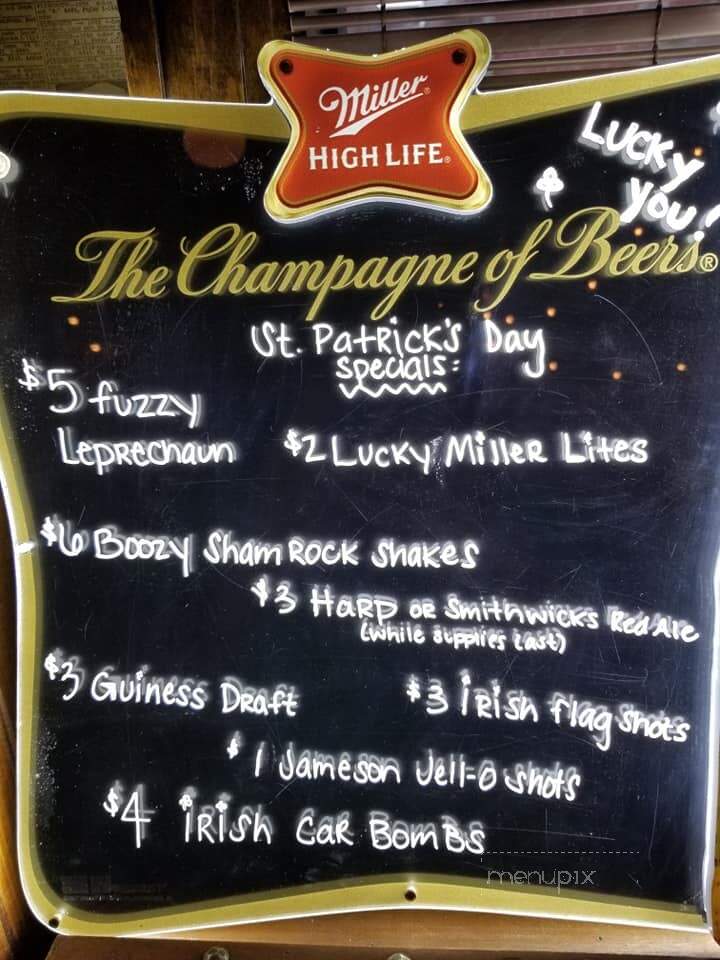 Miller
HIGH LIFE®
LUCKY
YOU!
The Champagne of Beers®
St. Patrick's Day
Specials:
$5 fuzzy
Leprechaun
$2 Lucky Miller Lites
$6 Boozy Shamrock Shakes
$3 Harp or Smithwicks Red Ale
(while supplies last)
$3 Guiness Draft
$3 Irish flag shots
$1 Jameson Jell-O shots
$4 Irish Car Bombs
menupix